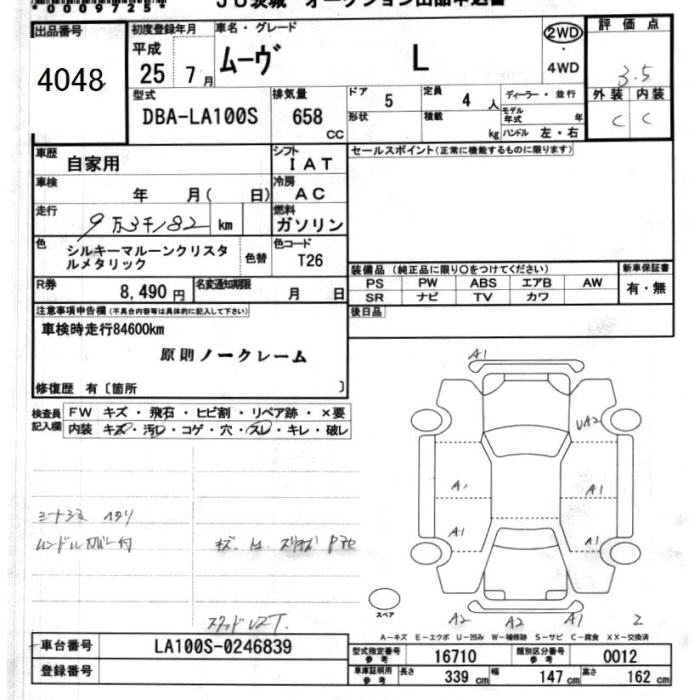 0009725
出品番号
4048
初度登録年月
平成
25年 7月
車名・グレード
ムーヴ L
2WD
・
4WD
評価点
3.5
外装 内装
C C
型式
DBA-LA100S
排気量
658
CC
ドア 5
定員 4 人
ディーラー・並行
形状
積載 kg
モデル年式 年
ハンドル 左・右
車歴
自家用
シフト
IAT
セールスポイント(正常に機能するものに限ります)
車検
年 月( 日)
冷房
AC
走行
9万3千182 km
燃料
ガソリン
色
シルキーマルーンクリスタ
ルメタリック
色替
色コード
T26
R券
8,490 円
名変通知期限
月 日
装備品 (純正品に限り○をつけてください)
PS PW ABS エアB AW
SR ナビ TV カワ
新車保証書
有・無
後日品
注意事項申告欄(不具合内容等は具体的に記入して下さい)
車検時走行84600km
原則ノークレーム
修復歴 有〔箇所 〕
検査員
記入欄
FW キズ・飛石・ヒビ割・リペア跡・×要
内装 キズ・汚レ・コゲ・穴・スレ・キレ・破レ
A1
UA2
A1
A1
A1
A1
スペア
A2 A2 A1
A-キズ E-エクボ U-凹み W-補修跡 S-サビ C-腐食 XX-交換済
車台番号
LA100S-0246839
登録番号
型式指定番号
参考
16710
類別区分番号
参考
0012
車庫証明用
参考
長さ 339 cm
幅 147 cm
高さ 162 cm